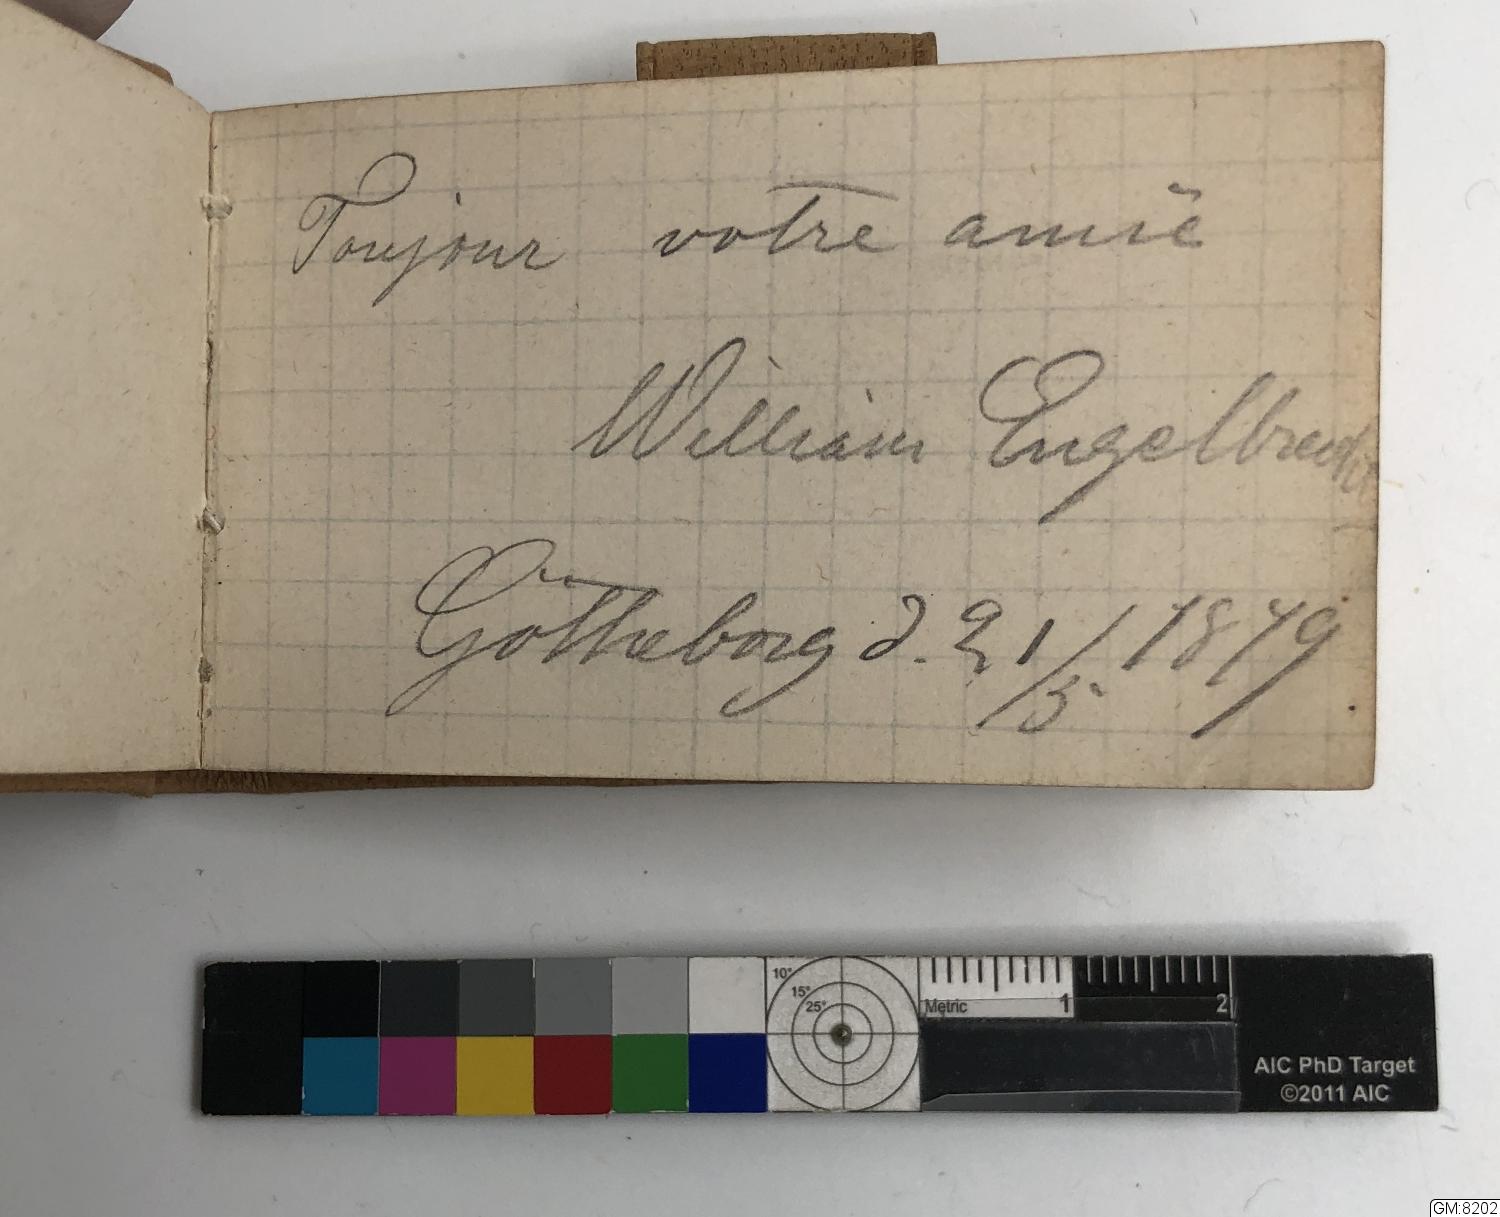 Toujour votre amië
William Engelbrecht
Götheborg d. 21/5 1879
10° 15° 25°
Metric 1 2
AIC PhD Target
©2011 AIC
GM:8202